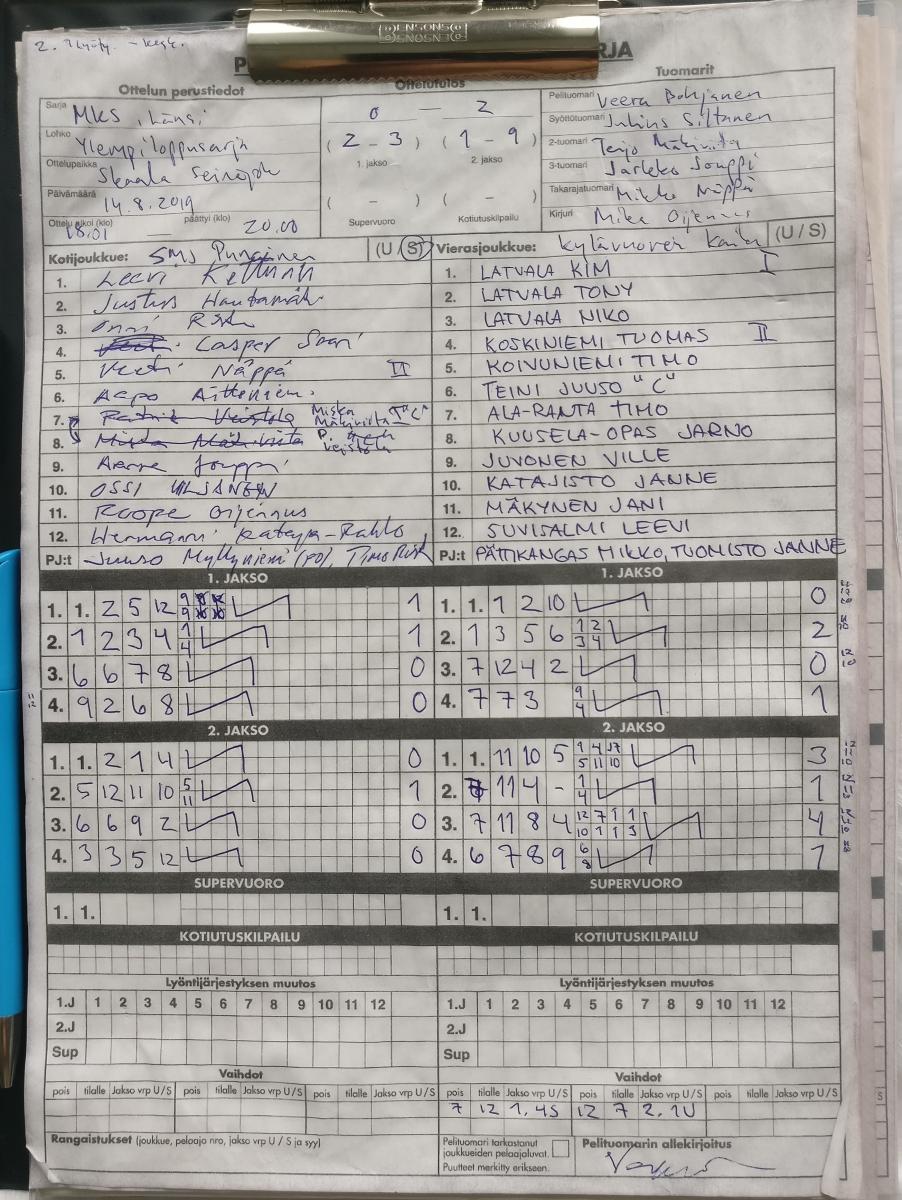 P
RJA
Ottelun perustiedot
Ottelutulos
Tuomarit
Sarja MKS, Länsi
0 – 2
Pelituomari Veera Pohjanen
Lohko Ylempiloppusarja
( 2 – 3 ) ( 1 – 9 )
Syöttötuomari Julius Siltanen
1. jakso 2. jakso
2-tuomari Terjo Mäkiviita
Ottelupaikka Skaala Seinäjoki
3-tuomari Jarkko Jouppi
Päivämäärä 14.8.2019
( – ) ( – )
Takarajatuomari Mikko Näppä
Ottelu alkoi (klo) 18.01 päättyi (klo) 20.00
Supervuoro Kotiutuskilpailu
Kirjuri Mika Oijennus
Kotijoukkue: SMJ Punainen (U / S)
Vierasjoukkue: (U / S) I
1. Leevi
2. Justus Hautamäki
3. Onni
4. Casper Saari
5. Veeti Näppä II
6. Aapo Aittoniemi
7. Miska Mäkiviita "C"
8. P. Veistola
9. Aarne Jouppi
10. OSSI
11. Roope Oijennus
12. Hermanni Rataja-Rahko
PJ:t Juuso Myllyniemi (PJ), Timo
1. LATVALA KIM
2. LATVALA TONY
3. LATVALA NIKO
4. KOSKINIEMI TUOMAS II
5. KOIVUNIEMI TIMO
6. TEINI JUUSO "C"
7. ALA-RANTA TIMO
8. KUUSELA-OPAS JARNO
9. JUVONEN VILLE
10. KATAJISTO JANNE
11. MÄKYNEN JANI
12. SUVISALMI LEEVI
PJ:t PÄTIKANGAS MIKKO, TUOMISTO JANNE
1. JAKSO
1. 1. 2 5 12 1
2. 1 2 3 4 1 4 1
3. 6 6 7 8 0
4. 9 2 6 8 0
1. JAKSO
1. 1. 1 2 10 0
2. 1 3 5 6 1 2 3 4 2
3. 7 12 4 2 0
4. 7 7 3 9 4 1
2. JAKSO
1. 1. 2 1 4 0
2. 5 12 11 10 5 11 1
3. 6 6 9 2 0
4. 3 3 5 12 0
2. JAKSO
1. 1. 11 10 5 3
2. 11 4 - 1 4 1
3. 7 11 8 4 12 7 1 1 10 1 1 3 4
4. 6 7 8 9 6 8 1
SUPERVUORO
1. 1.
SUPERVUORO
1. 1.
KOTIUTUSKILPAILU
KOTIUTUSKILPAILU
Lyöntijärjestyksen muutos
1.J 1 2 3 4 5 6 7 8 9 10 11 12
2.J
Sup
Lyöntijärjestyksen muutos
1.J 1 2 3 4 5 6 7 8 9 10 11 12
2.J
Sup
Vaihdot
pois tilalle Jakso vrp U / S pois tilalle Jakso vrp U / S pois tilalle Jakso vrp U / S
Vaihdot
pois tilalle Jakso vrp U / S pois tilalle Jakso vrp U / S pois tilalle Jakso vrp U / S
7 12 1. 4S 12 7 2. 1U
Rangaistukset (joukkue, pelaaja nro, jakso vrp U / S ja syy)
Pelituomari tarkastanut
joukkueiden pelaajaluvat.
Puutteet merkitty erikseen.
Pelituomarin allekirjoitus